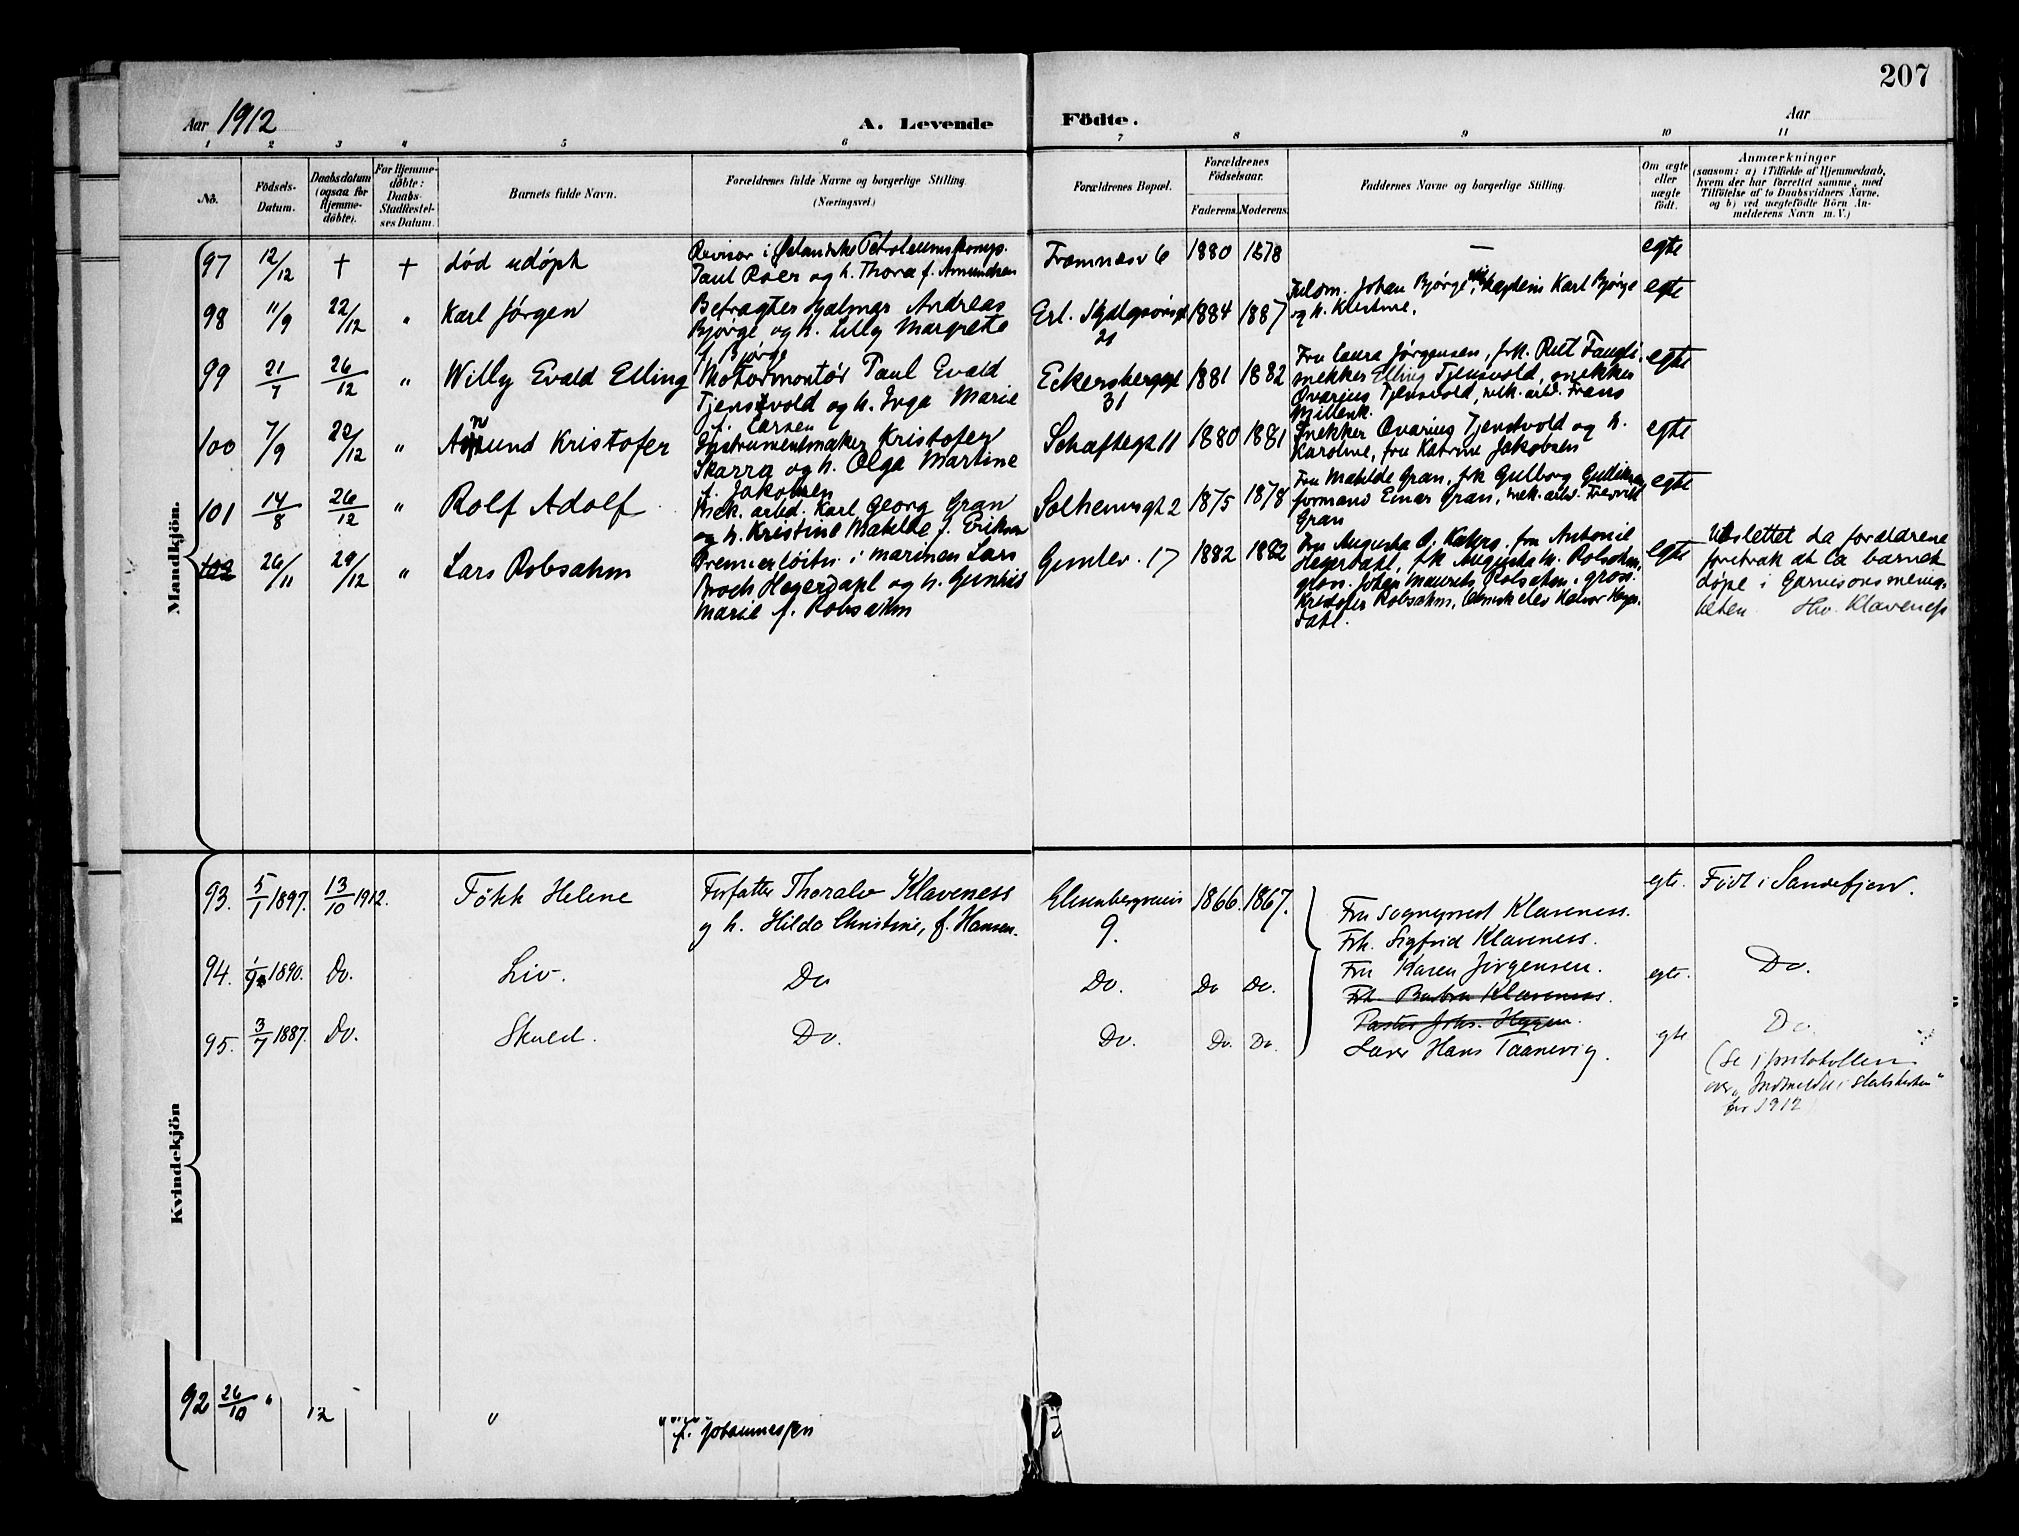 207
Aar 1912
A. Levende Födte.
Aar
1 2 3 4 5 6 7 8 9 10 11
No.
Födsels-
Datum.
Daabsdatum
(ogsaa for
Hjemme-
døbte).
For Hjemme-
døbte:
Daabs-
Stadfæstel-
ses Datum.
Barnets fulde Navn.
Forældrenes fulde Navne og borgerlige Stilling.
(Næringsvei.)
Forældrenes Bopæl.
Forældrenes
Födselsaar.
Faderens. Moderens.
Faddernes Navne og borgerlige Stilling.
Om ægte
eller
uægte
födt.
Anmærkninger
(saasom: a) i Tilfælde af Hjemmedaab,
hvem der har forrettet samme, med
Tilføielse af to Daabsvidners Navne,
og b) ved uægtefødte Börn An-
melderens Navn m. V.)
Mandkjön.
97 12/12 + + død udøpt
Revisor i Østlandske Petroleumskomp.
Paul Roer og h. Thora f. Amundsen
Framnæsv 6 1880 1878 — egte
98 11/9 22/12 " Karl Jørgen
Befragter Hjalmar Andreas
Bjørge og h. Lilly Margrete
f. Bjørge
Erl. Skjalgssønsgt
21
1884 1887
Johan Bjørge, kaptein Karl Bjørge
og h. Kristine.
egte
99 21/7 26/12 " Willy Evald Elling
Motormontør Paul Evald
Tjenstvold og h. Inga Marie
f. Larsen
Eckersberggt
31
1881 1882
Fru Laura Jørgensen, frk. Rut Faugli,
snekker Elling Tjensvold, snekker
Ovarius Tjensvold, mek. arb. Frans
egte
100 7/9 20/12 " Amund Kristofer
Instrumentmaker Kristofer
Skarra og h. Olga Martine
f. Jakobsen
Schaftegt 11 1880 1881
Snekker Ovarius Tjenstvold og h.
Karoline, fru Katrine Jakobsen
egte
101 14/8 26/12 " Rolf Adolf
Mek. arbd. Karl Georg Gran
og h. Kristine Matilde f. Eriksen
Solheimsgt 2 1875 1878
Fru Matilde Gran, frk Gulborg Gulliksen,
formand Einar Gran, mek. arbd.
Gran
egte
102 26/11 29/12 " Lars Robsahm
Premierløitn. i marinen Lars
Broch Hegerdahl og h. Gunvid
Marie f. Robsahm
Gimlev. 17 1882 1882
Fru Augusta O. fru Antonie
Hegerdahl, frk Augusta M. Robsahm,
gross. Johan Mauritz Robsahm, gross.
Kristofer Robsahm, Halvor Heger-
dahl.
egte
Udslettet da forældrene
foretrak at la barnet
døpe i Garnisonsmenig-
heten Thv. Klaveness
Kvindekjön
93. 5/1 1897. 13/10 1912. Tøkk Helene
Forfatter Thoralv Klaveness
og h. Hilda Christine, f. Hansen.
9.
1866. 1867.
egte. Født i Sandefjord.
94. 1890. Do. Liv. Do Do. Do Do. egte. Do.
95. 3/7 1887. Do. Skuld. Do. Do. Do. Do. egte Do.
Fru sogneprest Klaveness.
Frk. Sigfrid Klaveness.
Fru Karen Jørgensen.
Frk. Klaveness.
Pastor Johs. Hygen.
Hans Taanevig.
(Se i protokollen
over "Indmeldte i Statskirken"
for 1912
92 26/10 " 12 "
f. Johannessen